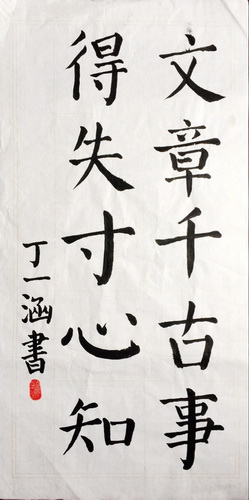 文章千古事
得失寸心知
丁一涵書